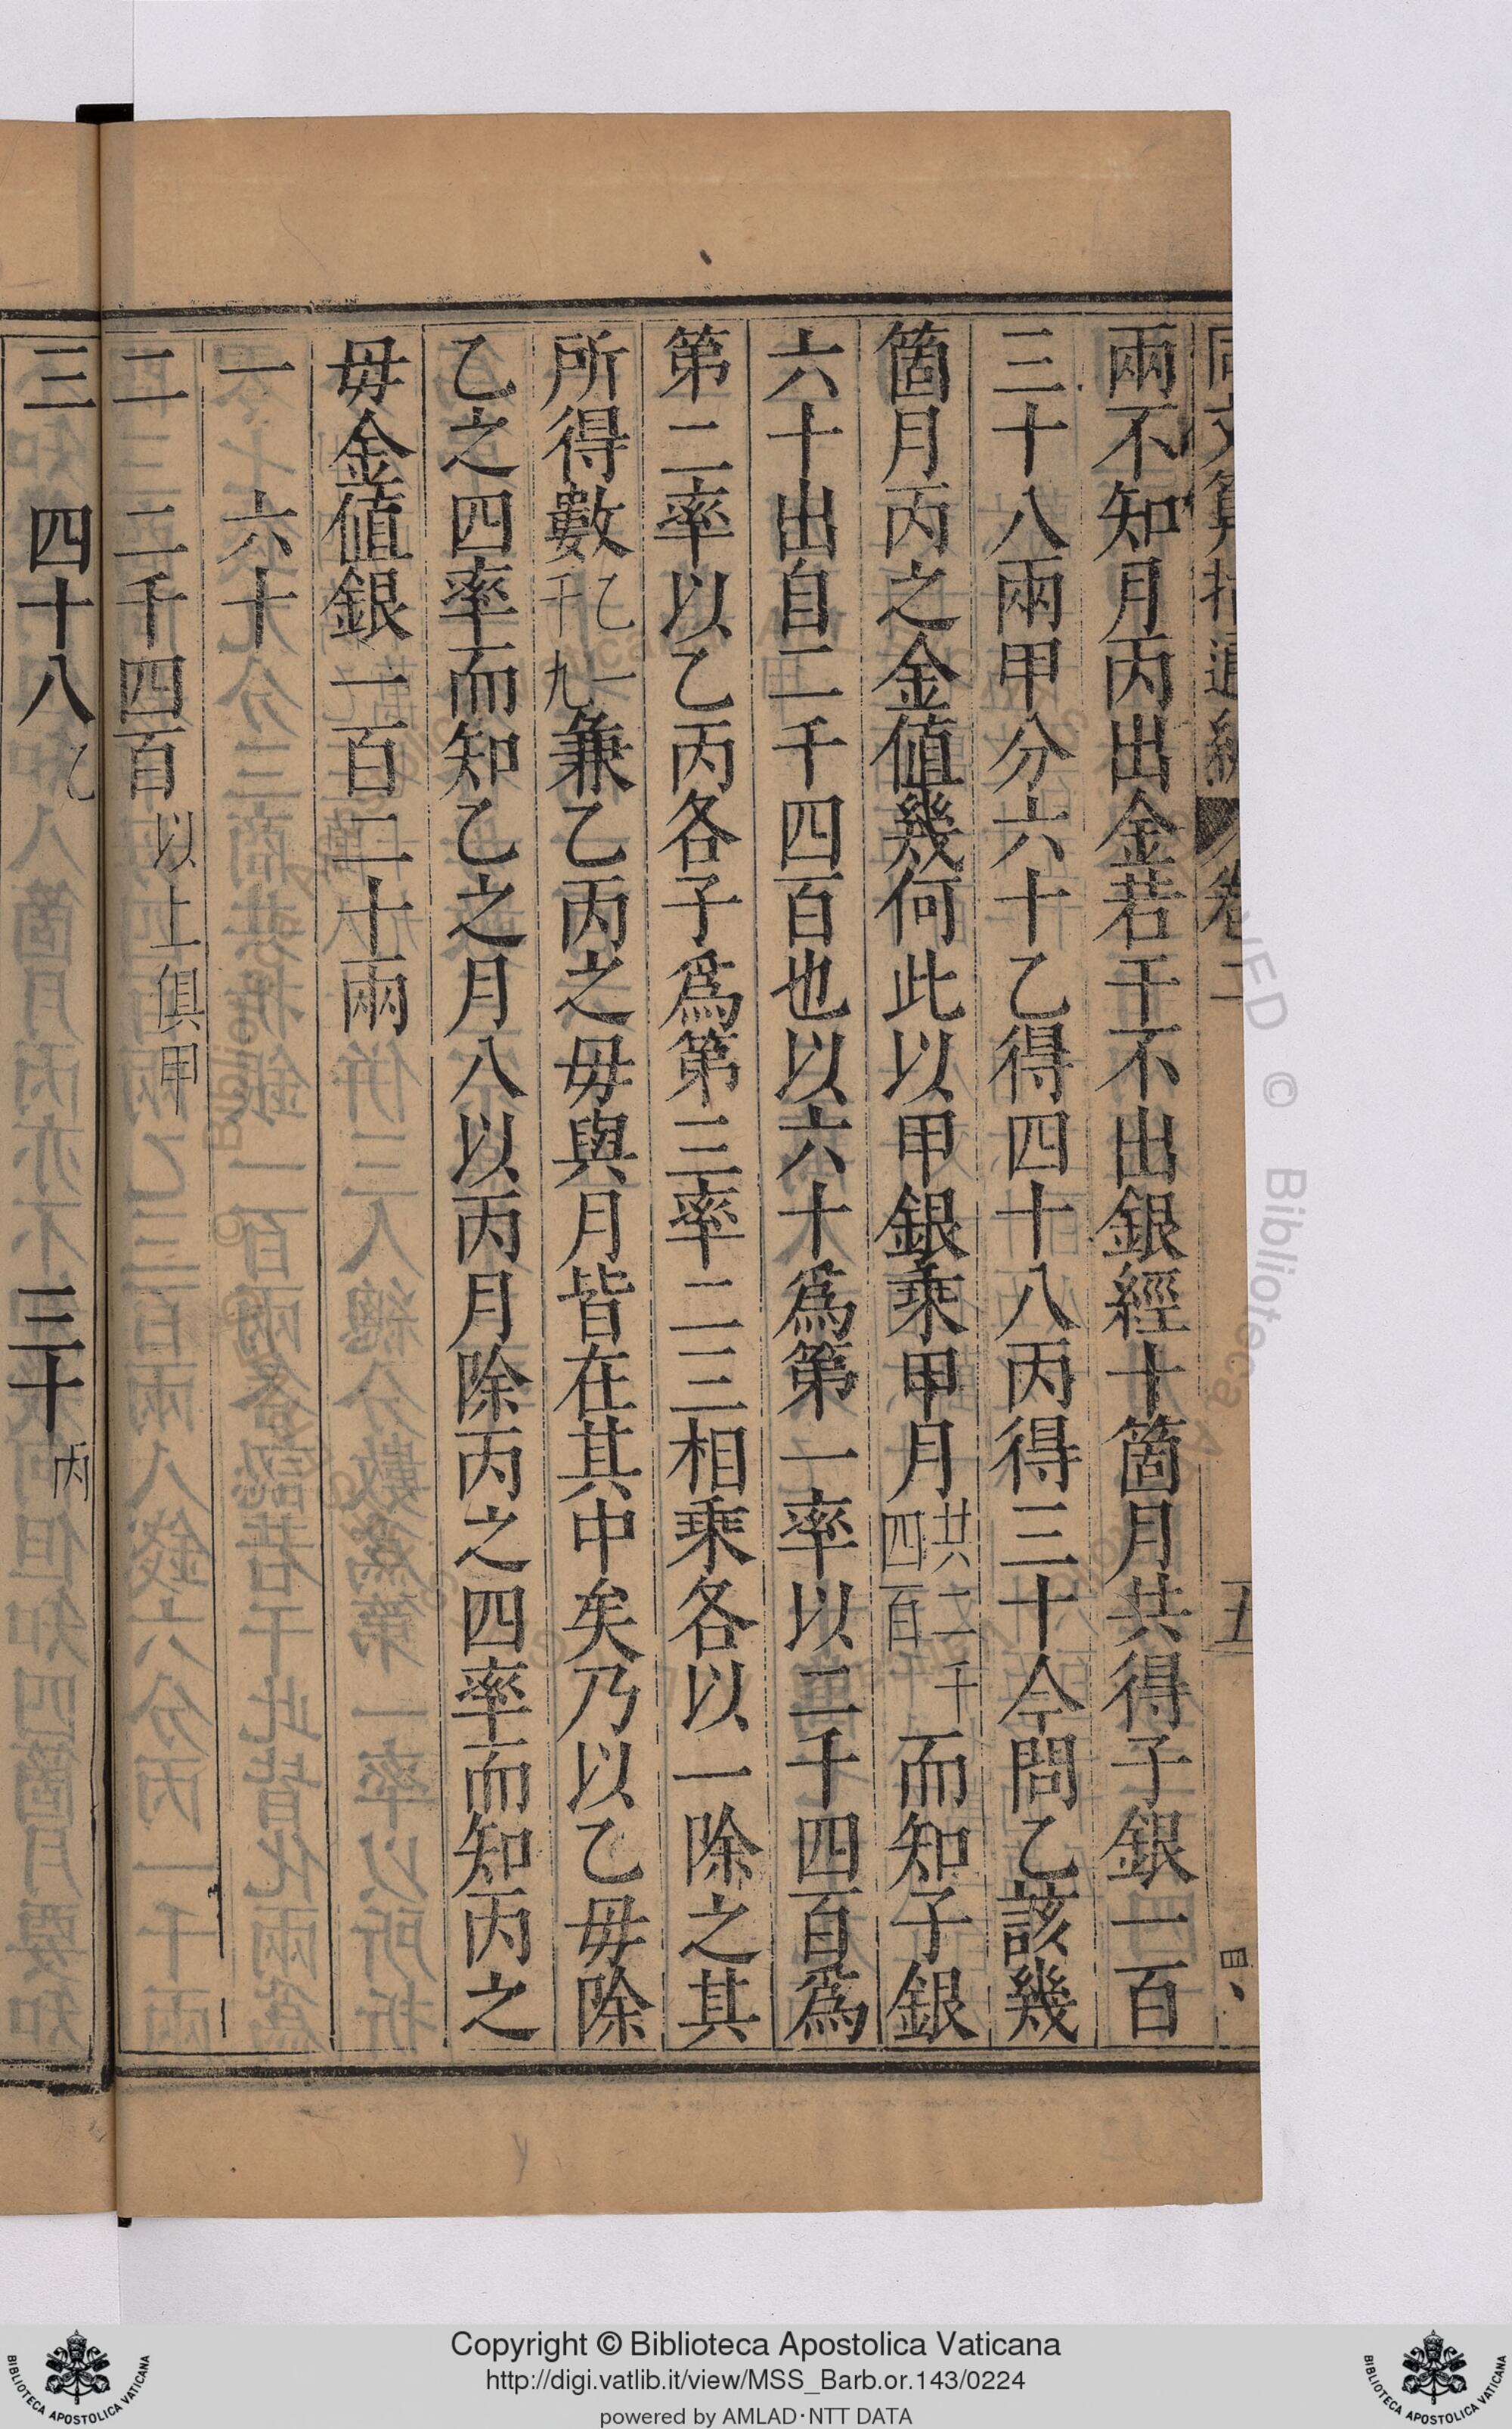 同文算指通編 卷二 五
兩不知月丙出金若干不出銀經十箇月共得子銀一百
三十八兩甲分六十乙得四十八丙得三十今問乙該幾
箇月丙之金值幾何此以甲銀乘甲月共二千四百而知子銀
六十出自二千四百也以六十爲第一率以二千四百爲
第二率以乙丙各子爲第三率二三相乘各以一除之其
所得數乙一千九兼乙丙之毋與月皆在其中矣乃以乙毋除
乙之四率而知乙之月八以丙月除丙之四率而知丙之
毋金值銀一百二十兩
一 六十
二 二千四百以上俱甲
三 四十八乙 三十丙
Copyright © Biblioteca Apostolica Vaticana
http://digi.vatlib.it/view/MSS_Barb.or.143/0224
powered by AMLAD·NTT DATA
BIBLIOTECA APOSTOLICA VATICANA
BIBLIOTECA APOSTOLICA VATICANA